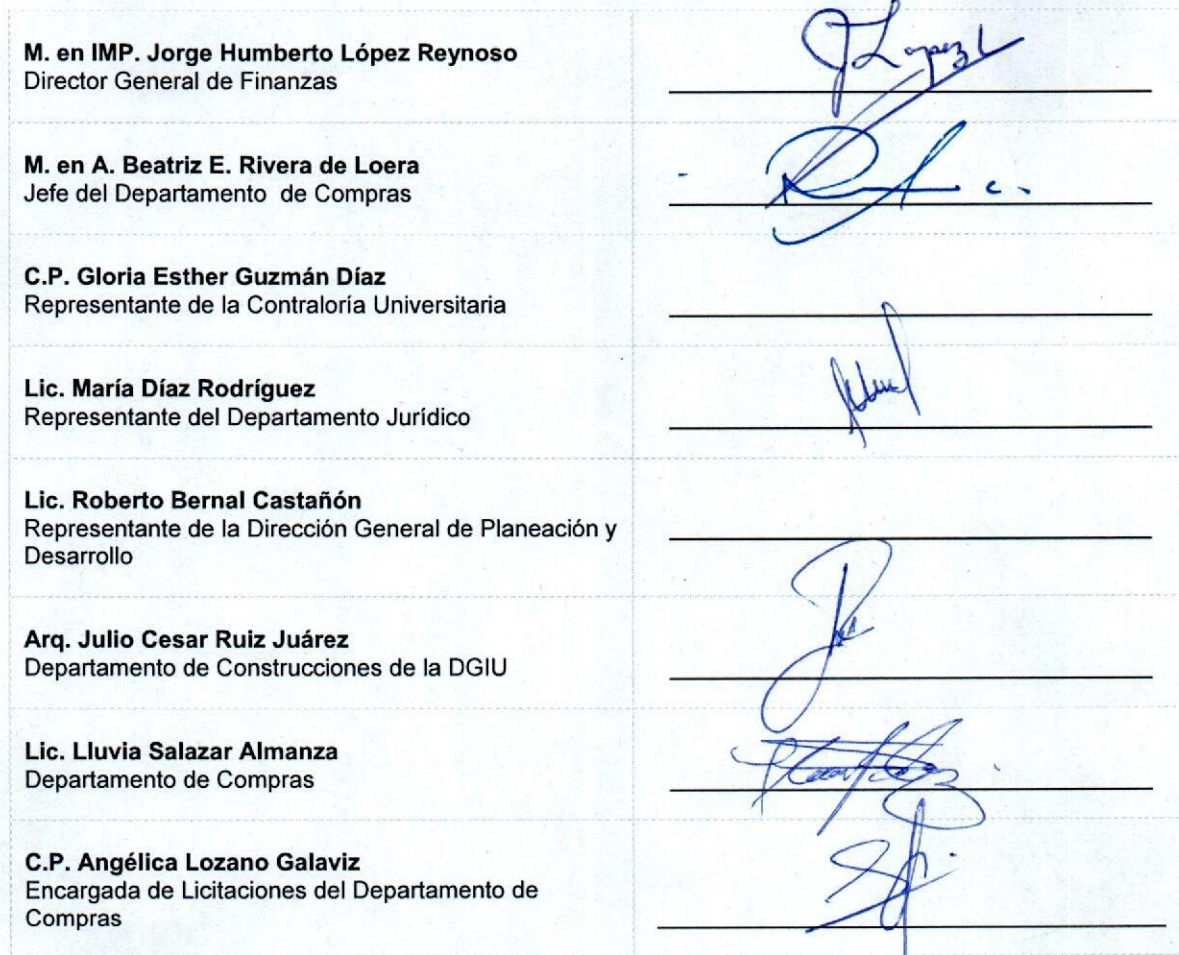 M. en IMP. Jorge Humberto López Reynoso
Director General de Finanzas
J Lopez
M. en A. Beatriz E. Rivera de Loera
Jefe del Departamento de Compras
C.P. Gloria Esther Guzmán Díaz
Representante de la Contraloría Universitaria
Lic. María Díaz Rodríguez
Representante del Departamento Jurídico
Lic. Roberto Bernal Castañón
Representante de la Dirección General de Planeación y
Desarrollo
Arq. Julio Cesar Ruiz Juárez
Departamento de Construcciones de la DGIU
Lic. Lluvia Salazar Almanza
Departamento de Compras
C.P. Angélica Lozano Galaviz
Encargada de Licitaciones del Departamento de
Compras